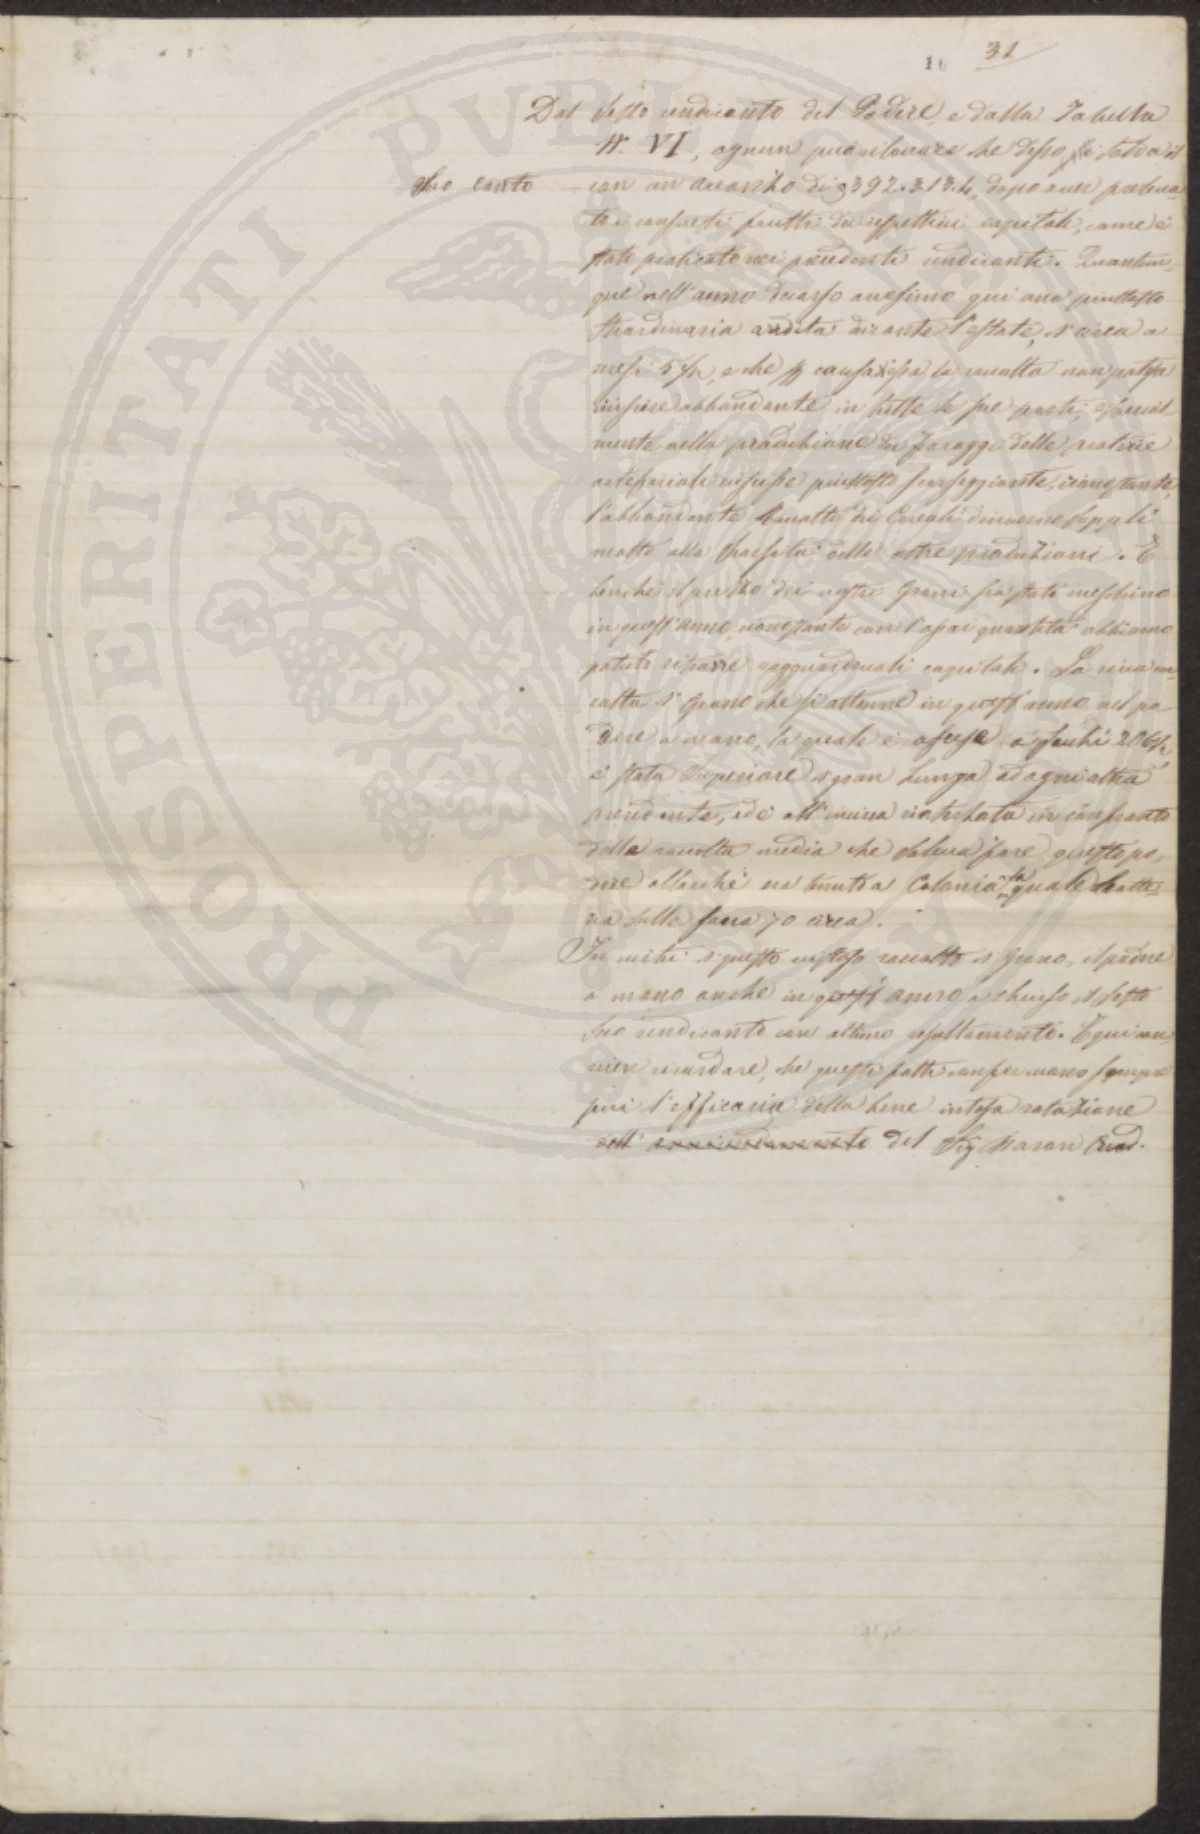 16 31
Dal sesto rendiconto del Podere, e dalla Tabella
N.° VI, ognun può rilevare che desso si salda il
suo conto con un avanzo di 392.3.13.4, dopo aver preleva-
ti i consueti frutti dei respettivi capitali, come è
stato praticato nei precedenti rendiconti. Quantun-
que nell'anno decorso avessimo qui una piuttosto
straordinaria aridità durante l'estate, di circa a
mesi 5 ½, e che p causa di essa la raccolta non potesse
riuscire abbondante in tutte le sue parti, e special
mente nella produzione dei foraggi delle praterie
artificiali riuscisse piuttosto scarseggiante, nonostante
l'abbondante raccolta di Cereali d'inverno supplì
molto alla scarsità delle altre produzioni. E
benché il prezzo dei nostri grani sia stato meschino
in quest'anno, nonostante con l'assai quantità abbiamo
potuto ritrarre ragguardevoli capitali. La ricca rac
colta di grano che si ottenne in quest'anno nel po
dere a mano, la quale è ascesa a sacchi 206 ½
è stata superiore di gran lunga ad ogni altra
precedente, ed è all'incirca in confronto
della raccolta media che soleva fare questo po-
dere allorché era tenuto a Colonia, la quale batte-
va sulle sacca 70 circa.
In virtù di questo vistoso raccolto di grano, il podere
a mano anche in quest'anno a chiuso il sesto
suo rendiconto con ottimo resultamento. E qui con-
vien ricordare, che questi fatti confermano sempre
più l'efficacia della bene intesa rotazione
dell' avvicendamento del Sig Baron Crud.
PROSPERITATI PVBLICAE